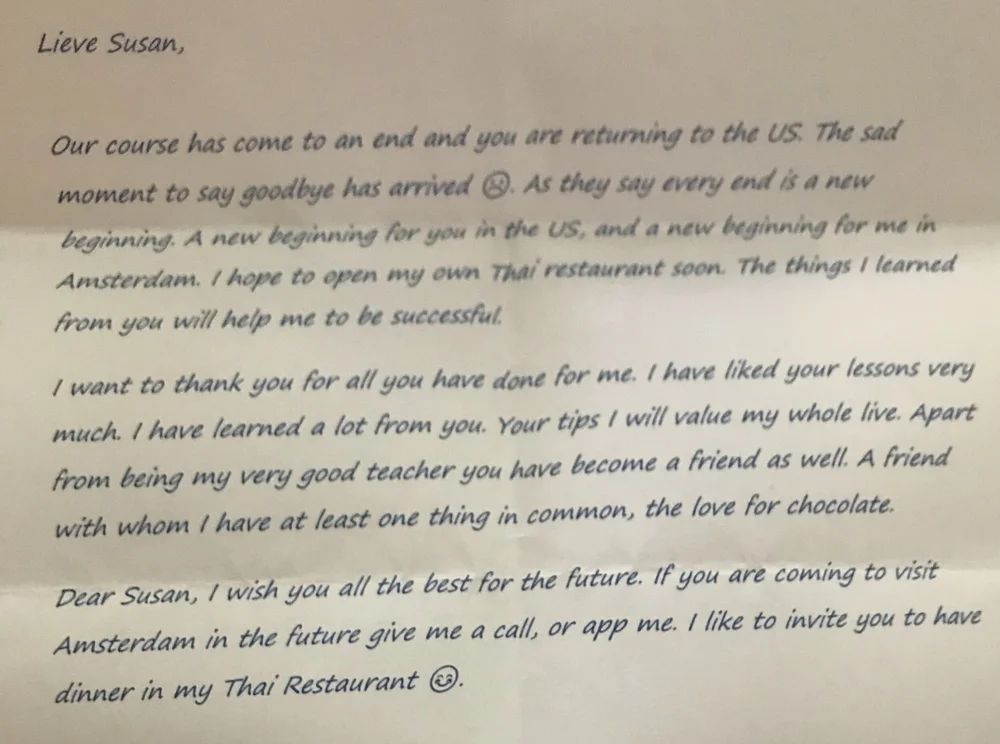 Lieve Susan,
Our course has come to an end and you are returning to the US. The sad
moment to say goodbye has arrived ☹. As they say every end is a new
beginning. A new beginning for you in the US, and a new beginning for me in
Amsterdam. I hope to open my own Thai restaurant soon. The things I learned
from you will help me to be successful.
I want to thank you for all you have done for me. I have liked your lessons very
much. I have learned a lot from you. Your tips I will value my whole live. Apart
from being my very good teacher you have become a friend as well. A friend
with whom I have at least one thing in common, the love for chocolate.
Dear Susan, I wish you all the best for the future. If you are coming to visit
Amsterdam in the future give me a call, or app me. I like to invite you to have
dinner in my Thai Restaurant 😊.